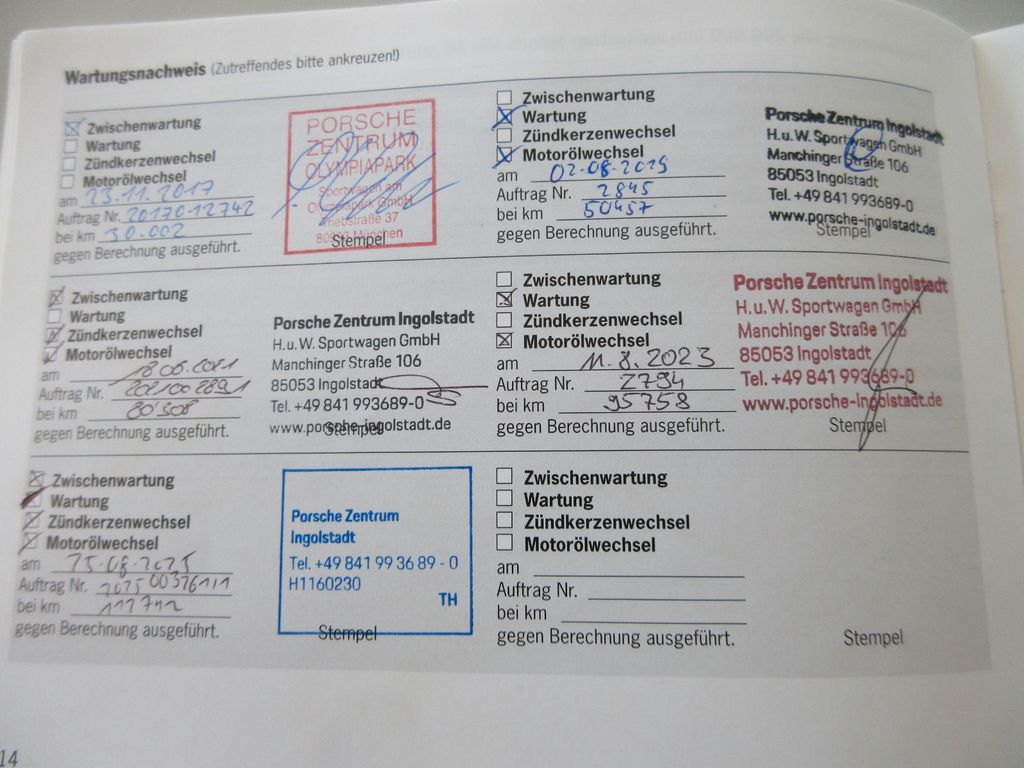 Wartungsnachweis (Zutreffendes bitte ankreuzen!)
Zwischenwartung
Wartung
Zündkerzenwechsel
Motorölwechsel
am 23.11.2017
Auftrag Nr. 2017012742
bei km 30.002
gegen Berechnung ausgeführt.
PORSCHE
ZENTRUM
OLYMPIAPARK
Sportwagen am
Olympiapark GmbH
straße 37
München
Stempel
Zwischenwartung
Wartung
Zündkerzenwechsel
Motorölwechsel
am 02.08.2019
Auftrag Nr. 2845
bei km 50457
gegen Berechnung ausgeführt.
Porsche Zentrum Ingolstadt
H.u.W. Sportwagen GmbH
Manchinger Straße 106
85053 Ingolstadt
Tel. +49 841 993689-0
www.porsche-ingolstadt.de
Stempel
Zwischenwartung
Wartung
Zündkerzenwechsel
Motorölwechsel
am 18.08.2021
Auftrag Nr. 2021002891
bei km 80'308
gegen Berechnung ausgeführt.
Porsche Zentrum Ingolstadt
H.u.W. Sportwagen GmbH
Manchinger Straße 106
85053 Ingolstadt
Tel. +49 841 993689-0
www.porsche-ingolstadt.de
Stempel
Zwischenwartung
Wartung
Zündkerzenwechsel
Motorölwechsel
am 11.8.2023
Auftrag Nr. 2794
bei km 95758
gegen Berechnung ausgeführt.
Porsche Zentrum Ingolstadt
H.u.W. Sportwagen GmbH
Manchinger Straße 106
85053 Ingolstadt
Tel. +49 841 993689-0
www.porsche-ingolstadt.de
Stempel
Zwischenwartung
Wartung
Zündkerzenwechsel
Motorölwechsel
am 25.08.2025
Auftrag Nr. 202500376111
bei km 111742
gegen Berechnung ausgeführt.
Porsche Zentrum
Ingolstadt
Tel. +49 841 99 36 89 - 0
H1160230
TH
Stempel
Zwischenwartung
Wartung
Zündkerzenwechsel
Motorölwechsel
am
Auftrag Nr.
bei km
gegen Berechnung ausgeführt.
Stempel
14